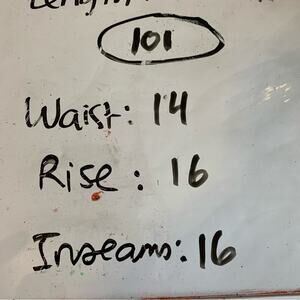 Length:
101
Waist: 14
Rise: 16
Inseams: 16